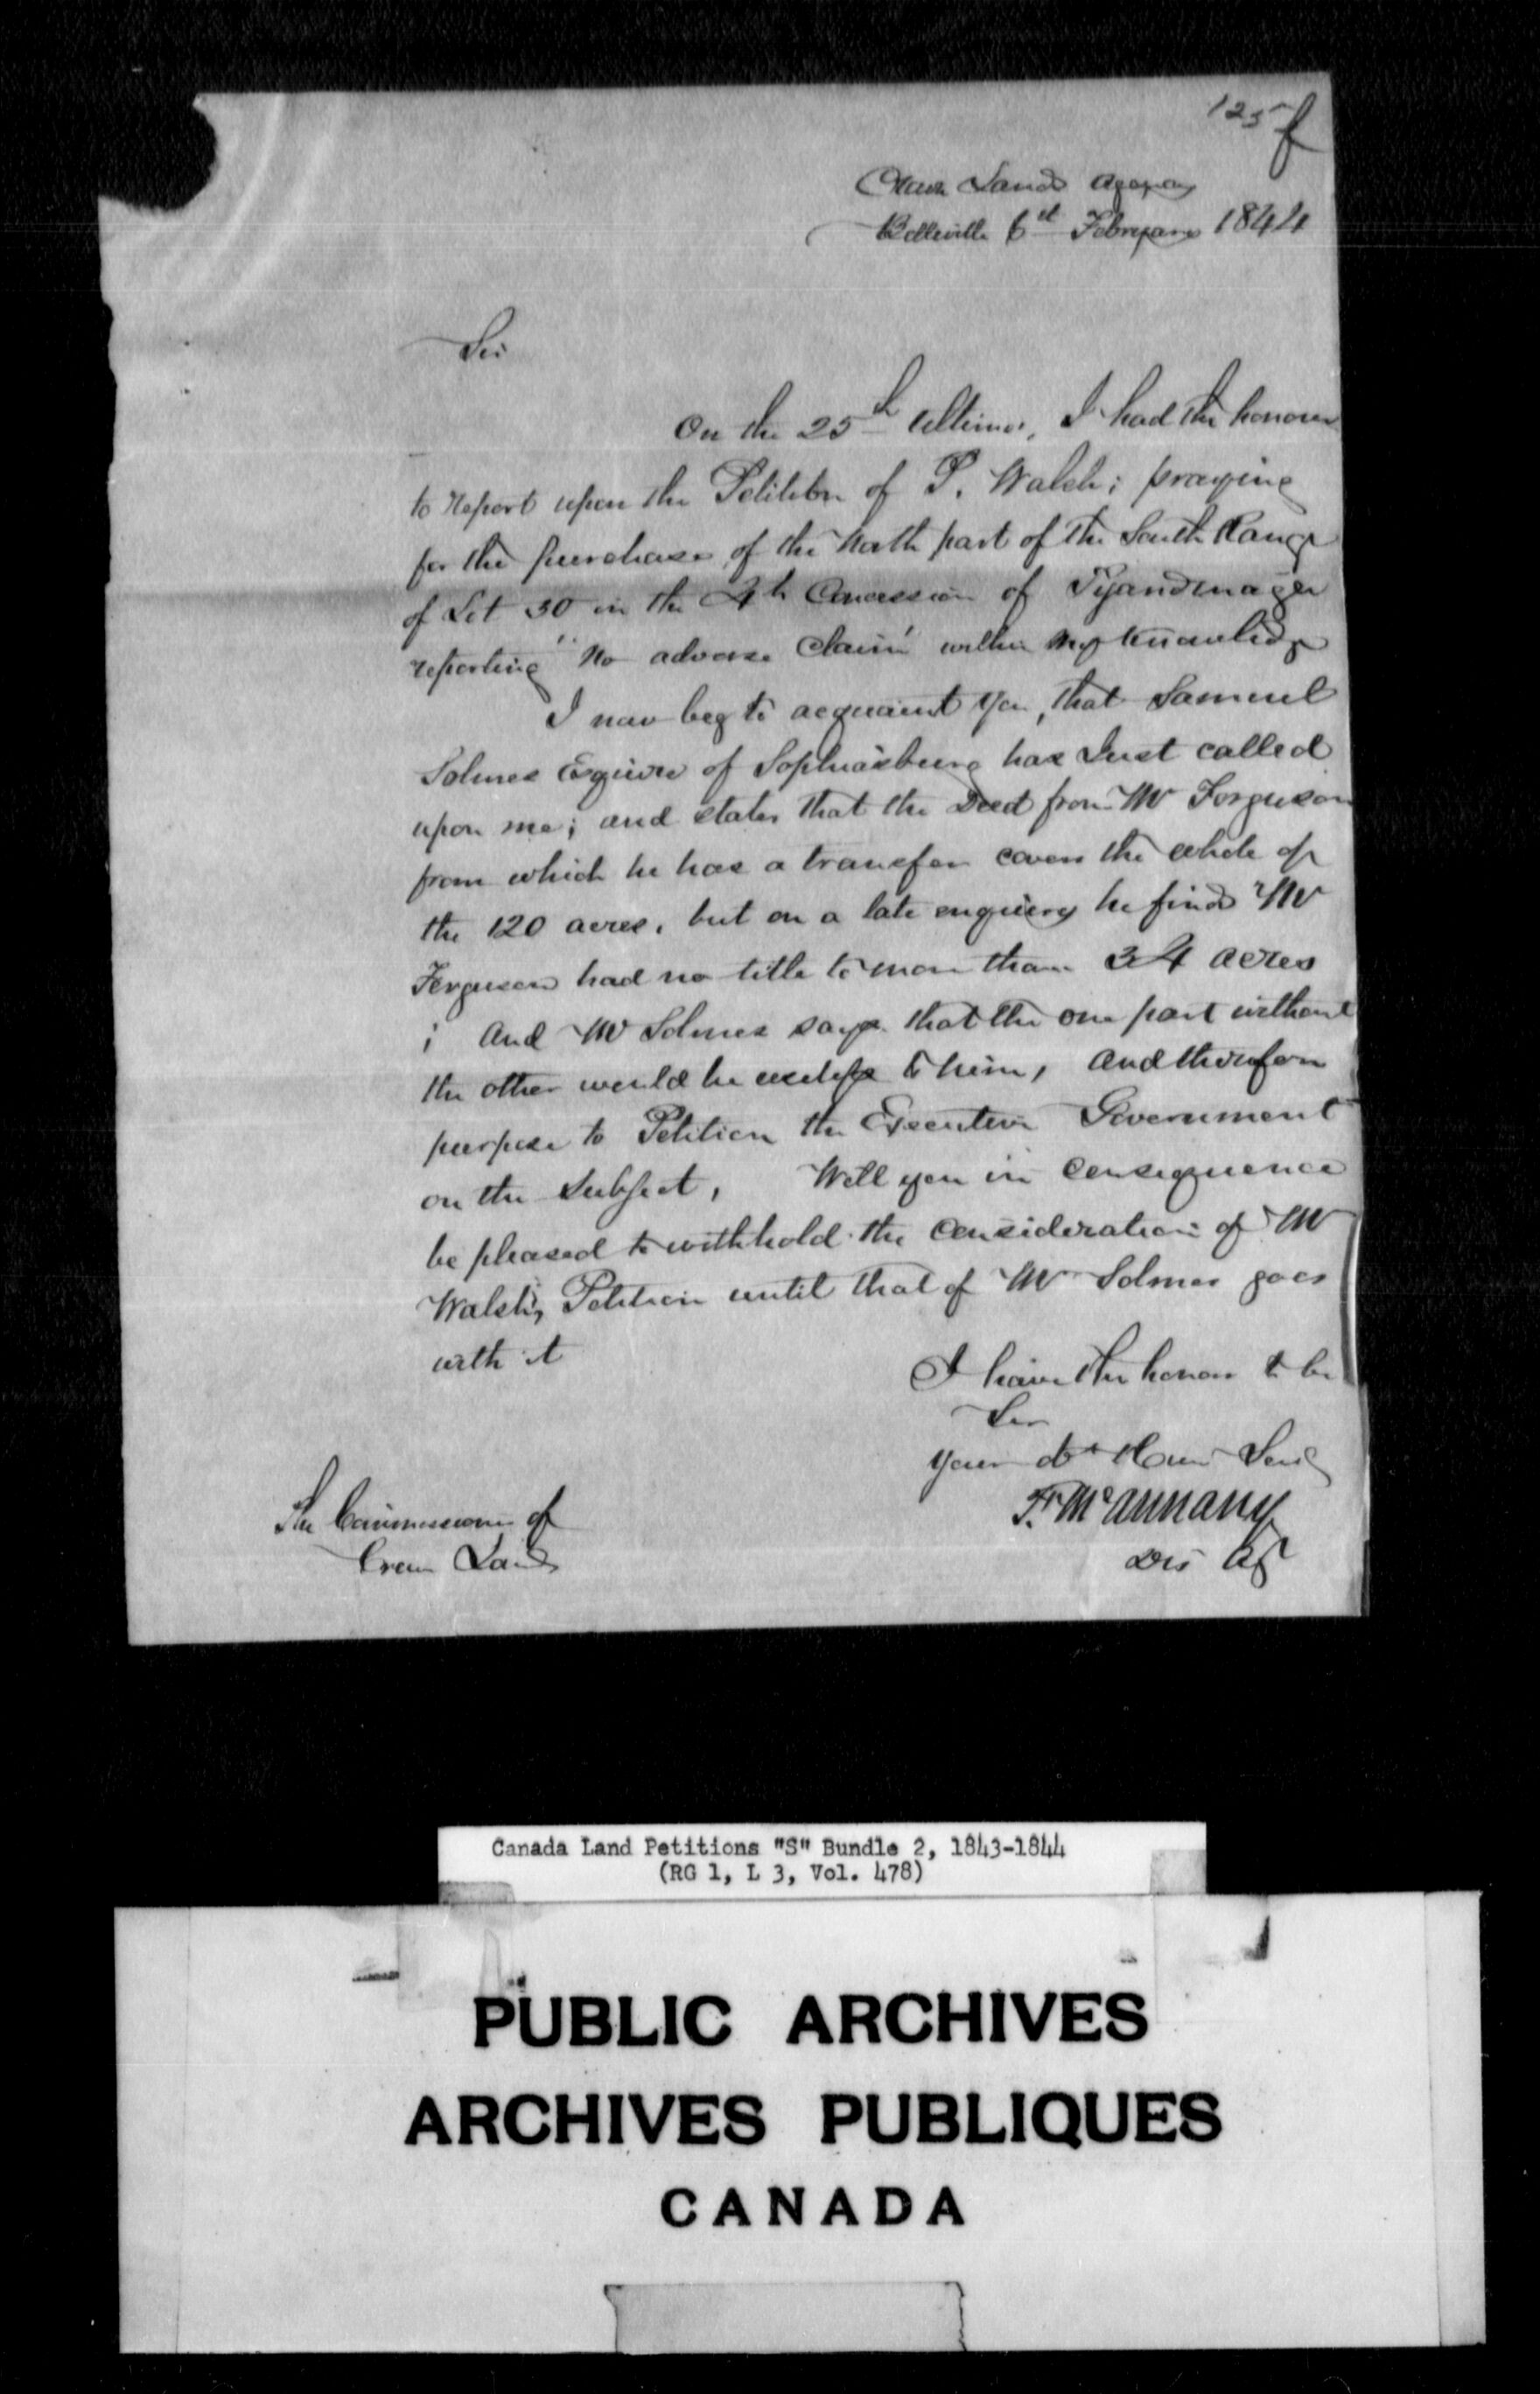 125 f
Crown Lands Agency
Belleville 6th February 1844
Sir
On the 25th Ultimo, I had the honour
to report upon the Petition of P. Walsh; praying
for the purchase of the North part of the South Range
of Lot 30 in the 4th Concession of Tyandinaga
reporting "No adverse claim" within my knowledge
I now beg to acquaint you, that Samuel
Solmes Esquire of Sophiasburg has Just called
upon me; and states that the Deed from Mr Ferguson
from which he has a transfer covers the whole of
the 120 acres, but on a late enquiry he finds Mr
Ferguson had no title to more than 34 acres
; And Mr Solmes says that the one part without
the other would be useless to him, and therefore
purpose to Petition the Executive Government
on the Subject, Will you in consequence
be pleased to withhold the consideration of Mr
Walsh's Petition until that of Mr Solmes goes
with it
I have the honor to be
Sir
your obt Hum Serv
F. McAnnany
Dis Agt
The Commissioner of
Crown Lands
Canada Land Petitions "S" Bundle 2, 1843-1844
(RG 1, L 3, Vol. 478)
PUBLIC ARCHIVES
ARCHIVES PUBLIQUES
CANADA